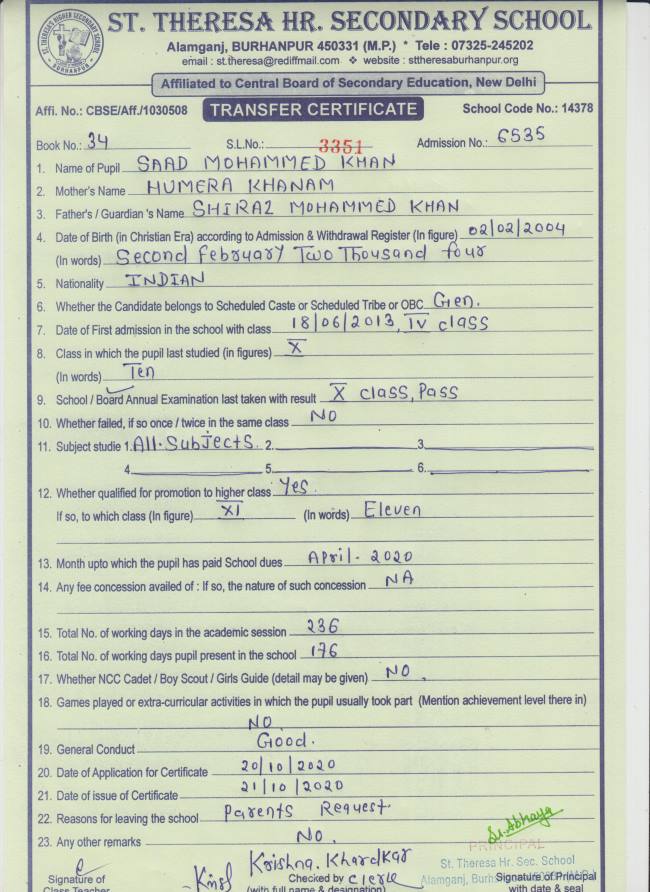 ST. THERESA HR. SECONDARY SCHOOL
Alamganj, BURHANPUR 450331 (M.P.) * Tele : 07325-245202
email : st.theresa@rediffmail.com ❖ website : sttheresaburhanpur.org
Affiliated to Central Board of Secondary Education, New Delhi
Affi. No.: CBSE/Aff./1030508 TRANSFER CERTIFICATE School Code No.: 14378
Book No.: 34 S.L.No.: 3351 Admission No.: 6535
1. Name of Pupil SAAD MOHAMMED KHAN
2. Mother's Name HUMERA KHANAM
3. Father's / Guardian 's Name SHIRAZ MOHAMMED KHAN
4. Date of Birth (in Christian Era) according to Admission & Withdrawal Register (In figure) 02/02/2004
(In words) Second February Two Thousand four
5. Nationality INDIAN
6. Whether the Candidate belongs to Scheduled Caste or Scheduled Tribe or OBC Gen.
7. Date of First admission in the school with class 18/06/2013, IV class
8. Class in which the pupil last studied (in figures) X
(In words) Ten
9. School / Board Annual Examination last taken with result X class, Pass
10. Whether failed, if so once / twice in the same class NO
11. Subject studie 1. All. Subjects. 2. 3.
4. 5. 6.
12. Whether qualified for promotion to higher class Yes.
If so, to which class (In figure) XI (In words) Eleven
13. Month upto which the pupil has paid School dues April - 2020
14. Any fee concession availed of : If so, the nature of such concession NA
15. Total No. of working days in the academic session 236
16. Total No. of working days pupil present in the school 176
17. Whether NCC Cadet / Boy Scout / Girls Guide (detail may be given) NO.
18. Games played or extra-curricular activities in which the pupil usually took part (Mention achievement level there in)
NO.
19. General Conduct Good.
20. Date of Application for Certificate 20/10/2020
21. Date of issue of Certificate 21/10/2020
22. Reasons for leaving the school Parents Request.
23. Any other remarks NO.
Sr. Abhaya
PRINCIPAL
St. Theresa Hr. Sec. School
Krishna. Khardkar
Signature of Checked by Clerk Signature of Principal
Class Teacher (with full name & designation) with date & seal